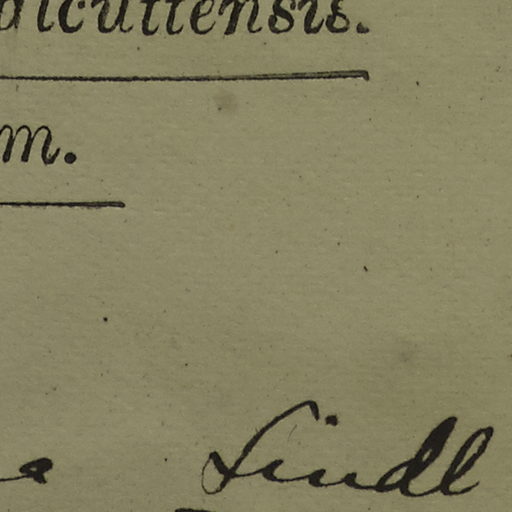 alcuttensis.
m.
a Lindl